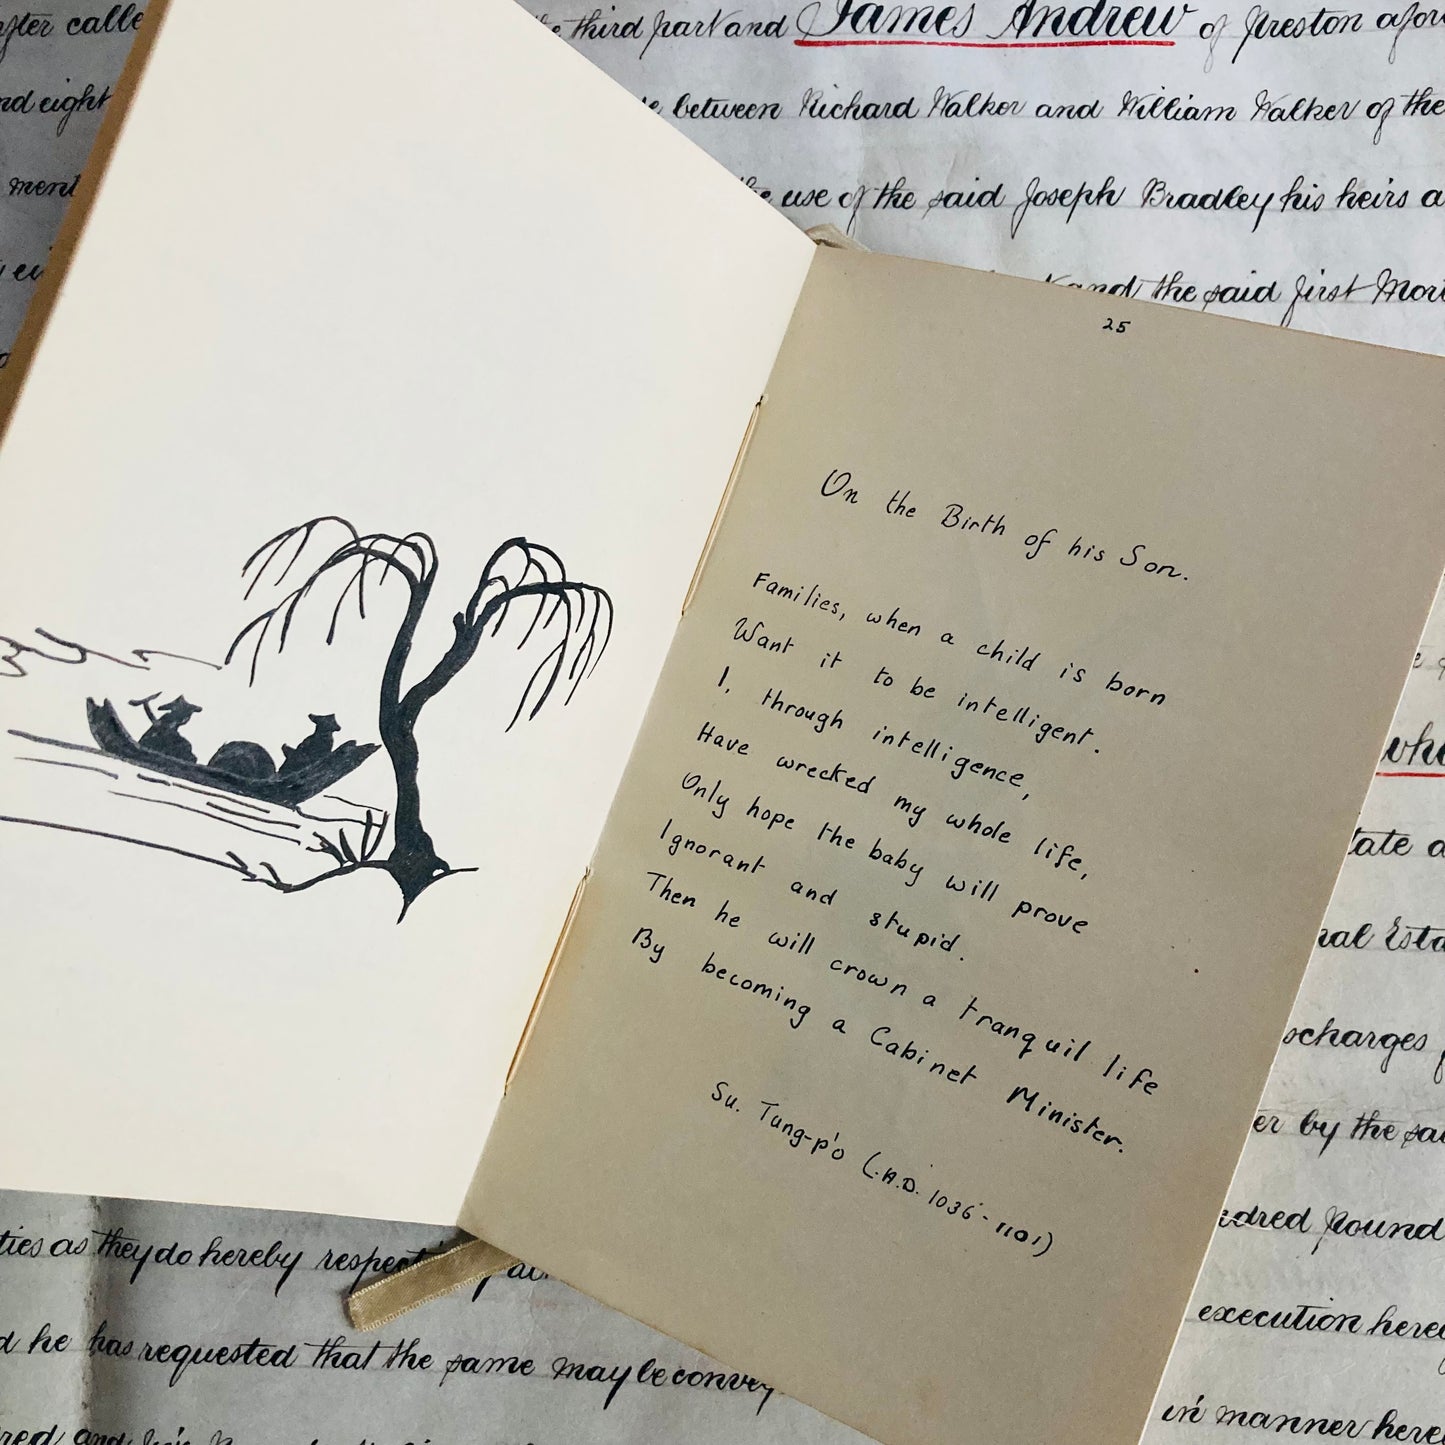 after calle
the third part and James Andrew of Preston afor
nd eight
between Richard Walker and William Walker of the
ment
the use of the said Joseph Bradley his heirs a
and the said first Mor
25
On the Birth of his Son.
Families, when a child is born
Want it to be intelligent.
I, through intelligence,
Have wrecked my whole life,
Only hope the baby will prove
Ignorant and stupid.
Then he will crown a tranquil life
By becoming a Cabinet Minister.
Su. Tung-p'o (A.D. 1036 - 1101)
who
tate a
nal Esta
scharges
er by the sai
ndred Pound
ties as they do hereby respect
execution here
d he has requested that the same may be convey
in manner here
red and